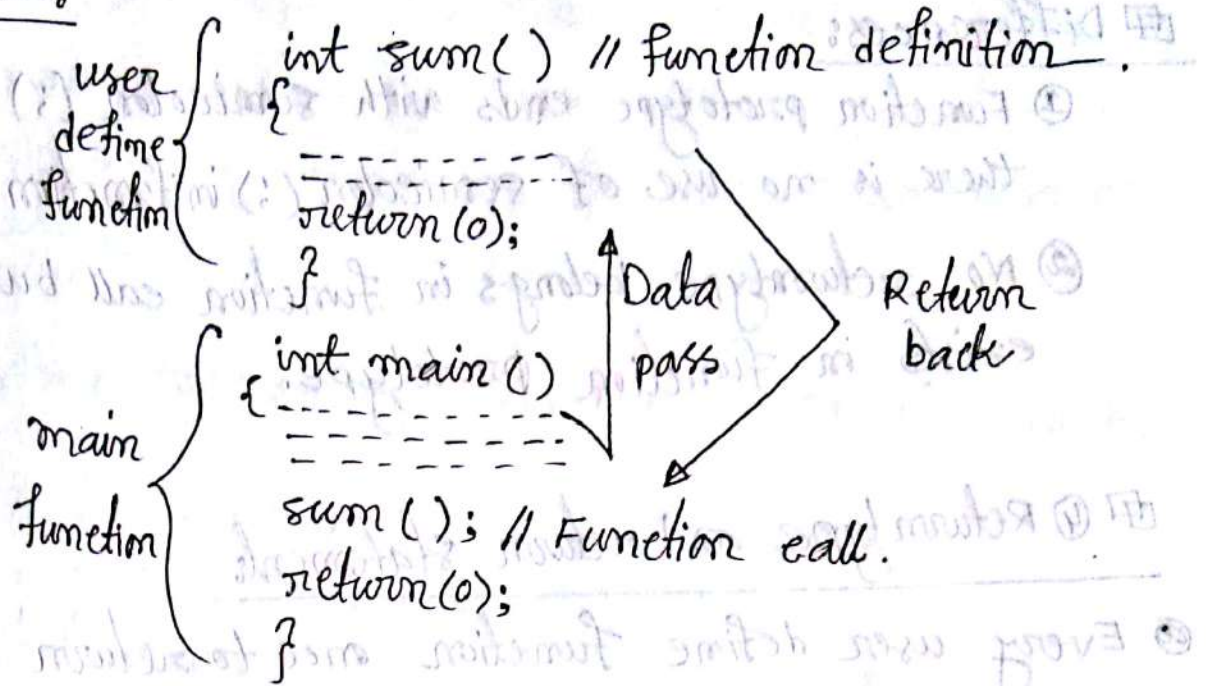 user
define
functin
int sum() // function definition.
{
return(0);
}
Data
pass
Return
back
main
function
int main()
{
sum(); // Function call.
return(0);
}